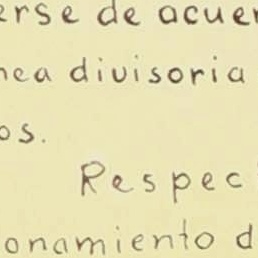 erse de acuer
nea divisoria
os.
Respec
onamiento d